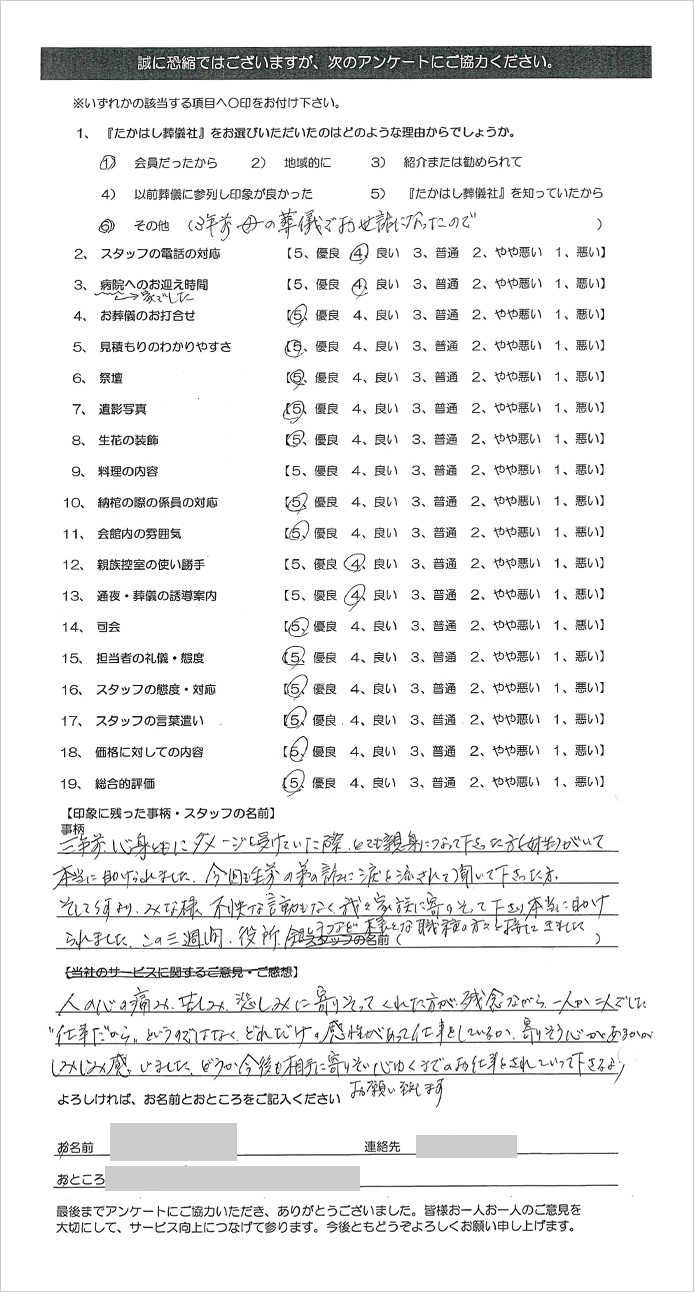 誠に恐縮ではございますが、次のアンケートにご協力ください。
※いずれかの該当する項目へ〇印をお付け下さい。
1、『たかはし葬儀社』をお選びいただいたのはどのような理由からでしょうか。
1） 会員だったから 2） 地域的に 3） 紹介または勧められて
4） 以前葬儀に参列し印象が良かった 5） 『たかはし葬儀社』を知っていたから
6） その他 （3年前 母の葬儀でお世話になったので ）
2、スタッフの電話の対応 【5、優良 4、良い 3、普通 2、やや悪い 1、悪い】
3、病院へのお迎え時間 【5、優良 4、良い 3、普通 2、やや悪い 1、悪い】
→家でした
4、お葬儀のお打合せ 【5、優良 4、良い 3、普通 2、やや悪い 1、悪い】
5、見積もりのわかりやすさ 【5、優良 4、良い 3、普通 2、やや悪い 1、悪い】
6、祭壇 【5、優良 4、良い 3、普通 2、やや悪い 1、悪い】
7、遺影写真 【5、優良 4、良い 3、普通 2、やや悪い 1、悪い】
8、生花の装飾 【5、優良 4、良い 3、普通 2、やや悪い 1、悪い】
9、料理の内容 【5、優良 4、良い 3、普通 2、やや悪い 1、悪い】
10、納棺の際の係員の対応 【5、優良 4、良い 3、普通 2、やや悪い 1、悪い】
11、会館内の雰囲気 【5、優良 4、良い 3、普通 2、やや悪い 1、悪い】
12、親族控室の使い勝手 【5、優良 4、良い 3、普通 2、やや悪い 1、悪い】
13、通夜・葬儀の誘導案内 【5、優良 4、良い 3、普通 2、やや悪い 1、悪い】
14、司会 【5、優良 4、良い 3、普通 2、やや悪い 1、悪い】
15、担当者の礼儀・態度 【5、優良 4、良い 3、普通 2、やや悪い 1、悪い】
16、スタッフの態度・対応 【5、優良 4、良い 3、普通 2、やや悪い 1、悪い】
17、スタッフの言葉遣い 【5、優良 4、良い 3、普通 2、やや悪い 1、悪い】
18、価格に対しての内容 【5、優良 4、良い 3、普通 2、やや悪い 1、悪い】
19、総合的評価 【5、優良 4、良い 3、普通 2、やや悪い 1、悪い】
【印象に残った事柄・スタッフの名前】
事柄
三年前 心身ともにダメージを受けていた際、とても親身になって下さった方（女性）がいて
本当に助けられました。今回も生前の弟の話に涙を流されて聞いて下さった方。
そして何より、みな様、不快な言動もなく、我々家族に寄りそって下さり本当に助け
られました。この三週間、役所、銀行 など 様々な職種の方々と接してきました
スタッフの名前（ ）
【当社のサービスに関するご意見・ご感想】
人の心の痛み、苦しみ、悲しみに寄りそってくれた方が、残念ながら、一人か二人でした
"仕事だから"というのではなく、どれだけの感性があって仕事をしているか、寄りそう心があるかが
しみじみ感じました。どうか今後も相手に寄りそい心ゆくまでのお仕事をされていって下さるよう
お願い致します
よろしければ、お名前とおところをご記入ください
お名前 連絡先
おところ
最後までアンケートにご協力いただき、ありがとうございました。皆様お一人お一人のご意見を
大切にして、サービス向上につなげて参ります。今後ともどうぞよろしくお願い申し上げます。